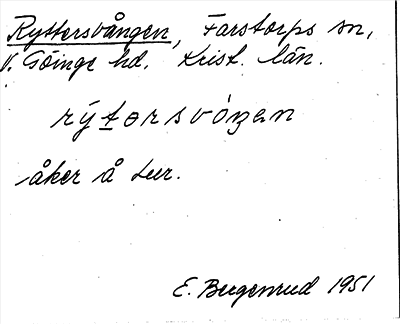 Ryttersvången, Farstorps sn,
V. Göinge hd. Krist. län.
rýtersvóŋen
åker å Lur.
E. Bergenrud 1951